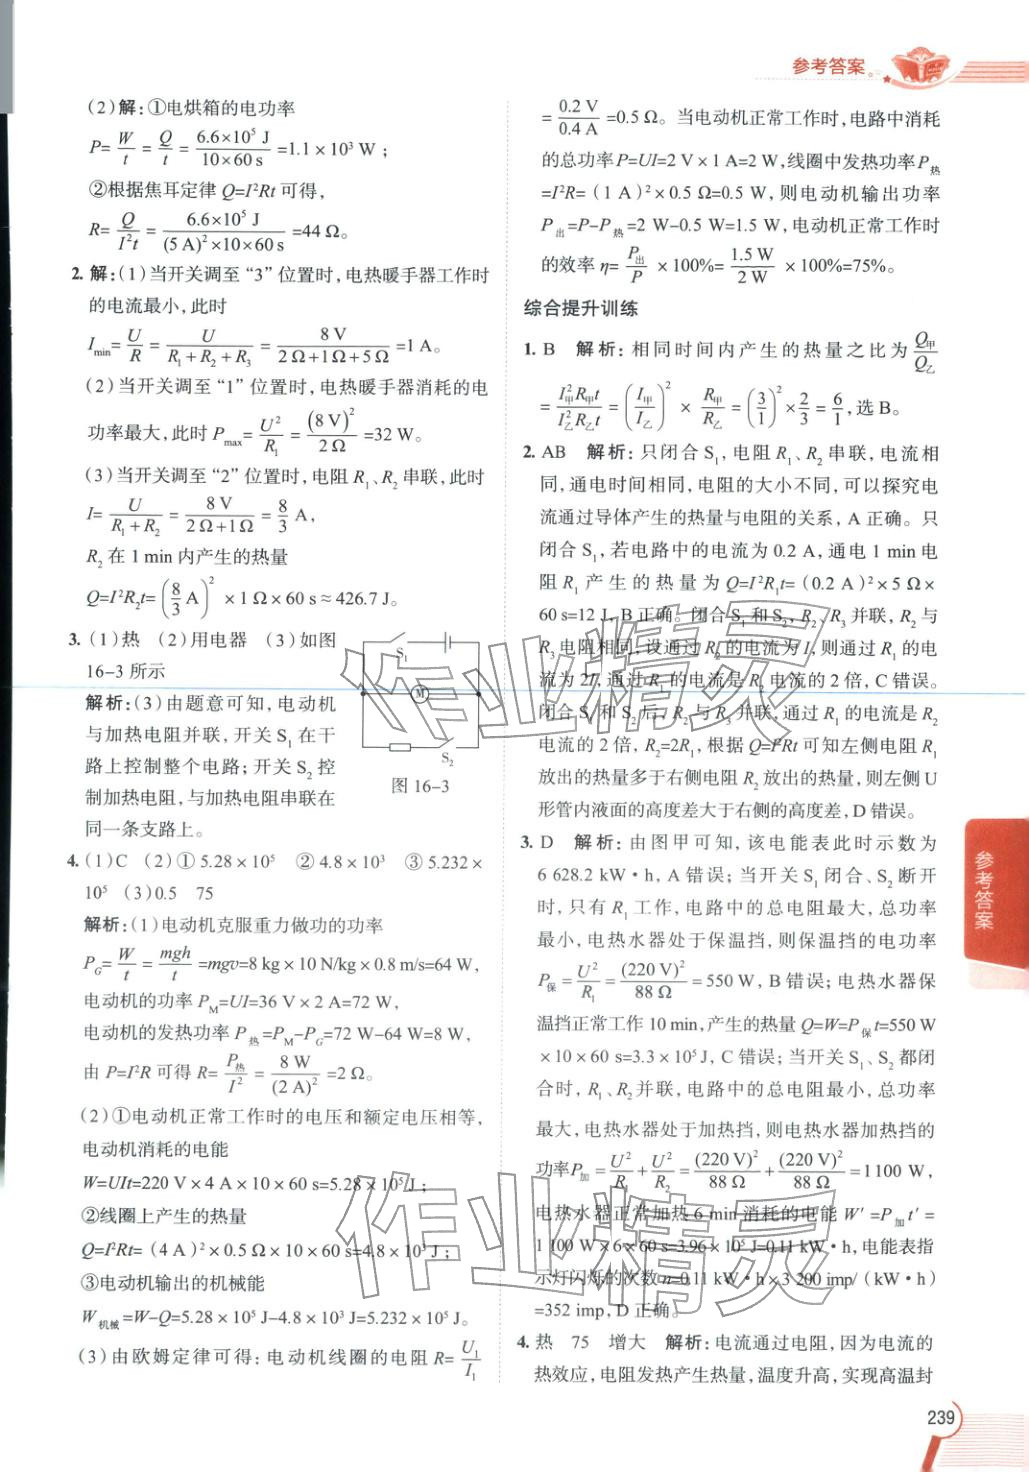 参考答案
(2)解:①电烘箱的电功率
P=W/t=Q/t=6.6×10⁵ J/10×60 s=1.1×10³ W;
②根据焦耳定律 Q=I²Rt 可得,
R=Q/I²t=6.6×10⁵ J/(5 A)²×10×60 s=44 Ω。
2. 解:(1)当开关调至“3”位置时,电热暖手器工作时
的电流最小,此时
I_min=U/R=U/(R₁+R₂+R₃)=8 V/(2 Ω+1 Ω+5 Ω)=1 A。
(2)当开关调至“1”位置时,电热暖手器消耗的电
功率最大,此时 P_max=U²/R₁=(8 V)²/2 Ω=32 W。
(3)当开关调至“2”位置时,电阻 R₁、R₂ 串联,此时
I=U/(R₁+R₂)=8 V/(2 Ω+1 Ω)=8/3 A,
R₂ 在 1 min 内产生的热量
Q=I²R₂t=(8/3 A)²×1 Ω×60 s≈426.7 J。
3. (1)热 (2)用电器 (3)如图
16-3 所示
解析:(3)由题意可知,电动机
与加热电阻并联,开关 S₁ 在干
路上控制整个电路;开关 S₂ 控
制加热电阻,与加热电阻串联在
同一条支路上。
S₁
M
S₂
图 16-3
4. (1)C (2)① 5.28×10⁵ ② 4.8×10³ ③ 5.232×
10⁵ (3)0.5 75
解析:(1)电动机克服重力做功的功率
P_G=W/t=mgh/t=mgv=8 kg×10 N/kg×0.8 m/s=64 W,
电动机的功率 P_M=UI=36 V×2 A=72 W,
电动机的发热功率 P_热=P_M-P_G=72 W-64 W=8 W,
由 P=I²R 可得 R=P_热/I²=8 W/(2 A)²=2 Ω。
(2)①电动机正常工作时的电压和额定电压相等,
电动机消耗的电能
W=UIt=220 V×4 A×10×60 s=5.28×10⁵ J;
②线圈上产生的热量
Q=I²Rt=(4 A)²×0.5 Ω×10×60 s=4.8×10³ J;
③电动机输出的机械能
W_机械=W-Q=5.28×10⁵ J-4.8×10³ J=5.232×10⁵ J。
(3)由欧姆定律可得:电动机线圈的电阻 R=U₁/I₁
=0.2 V/0.4 A=0.5 Ω。当电动机正常工作时,电路中消耗
的总功率P=UI=2 V×1 A=2 W,线圈中发热功率P_热
=I²R=(1 A)²×0.5 Ω=0.5 W,则电动机输出功率
P_出=P-P_热=2 W-0.5 W=1.5 W,电动机正常工作时
的效率 η=P_出/P×100%=1.5 W/2 W×100%=75%。
综合提升训练
1. B 解析:相同时间内产生的热量之比为Q_甲/Q_乙
=I²_甲R_甲t/I²_乙R_乙t=(I_甲/I_乙)²×R_甲/R_乙=(3/1)²×2/3=6/1,选B。
2. AB 解析:只闭合 S₁,电阻 R₁、R₂ 串联,电流相
同,通电时间相同,电阻的大小不同,可以探究电
流通过导体产生的热量与电阻的关系,A 正确。只
闭合 S₁,若电路中的电流为 0.2 A,通电 1 min 电
阻 R₁ 产生的热量为 Q=I²R₁t=(0.2 A)²×5 Ω×
60 s=12 J,B 正确。闭合 S₁ 和 S₂,R₂、R₃ 并联,R₂ 与
R₃ 电阻相同,设通过 R₂ 的电流为 I,则通过 R₁ 的电
流为 2I,通过 R₁ 的电流是 R₂ 电流的 2 倍,C 错误。
闭合 S₁ 和 S₂ 后,R₂ 与 R₃ 并联,通过 R₁ 的电流是 R₂
电流的 2 倍,R₂=2R₁,根据 Q=I²Rt 可知左侧电阻 R₁
放出的热量多于右侧电阻 R₂ 放出的热量,则左侧 U
形管内液面的高度差大于右侧的高度差,D 错误。
3. D 解析:由图甲可知,该电能表此时示数为
6 628.2 kW·h,A 错误;当开关 S₁ 闭合、S₂ 断开
时,只有 R₁ 工作,电路中的总电阻最大,总功率
最小,电热水器处于保温挡,则保温挡的电功率
P_保=U²/R₁=(220 V)²/88 Ω=550 W,B 错误;电热水器保
温挡正常工作 10 min,产生的热量 Q=W=P_保t=550 W
×10×60 s=3.3×10⁵ J,C 错误;当开关 S₁、S₂ 都闭
合时,R₁、R₂ 并联,电路中的总电阻最小,总功率
最大,电热水器处于加热挡,则电热水器加热挡的
功率P_加=U²/R₁+U²/R₂=(220 V)²/88 Ω+(220 V)²/88 Ω=1 100 W,
电热水器正常加热 6 min 消耗的电能 W′=P_加t′=
1 100 W×6×60 s=3.96×10⁵ J=0.11 kW·h,电能表指
示灯闪烁的次数 n=0.11 kW·h×3 200 imp/(kW·h)
=352 imp,D 正确。
4. 热 75 增大 解析:电流通过电阻,因为电流的
热效应,电阻发热产生热量,温度升高,实现高温封
参考答案
239
作业精灵
作业精灵